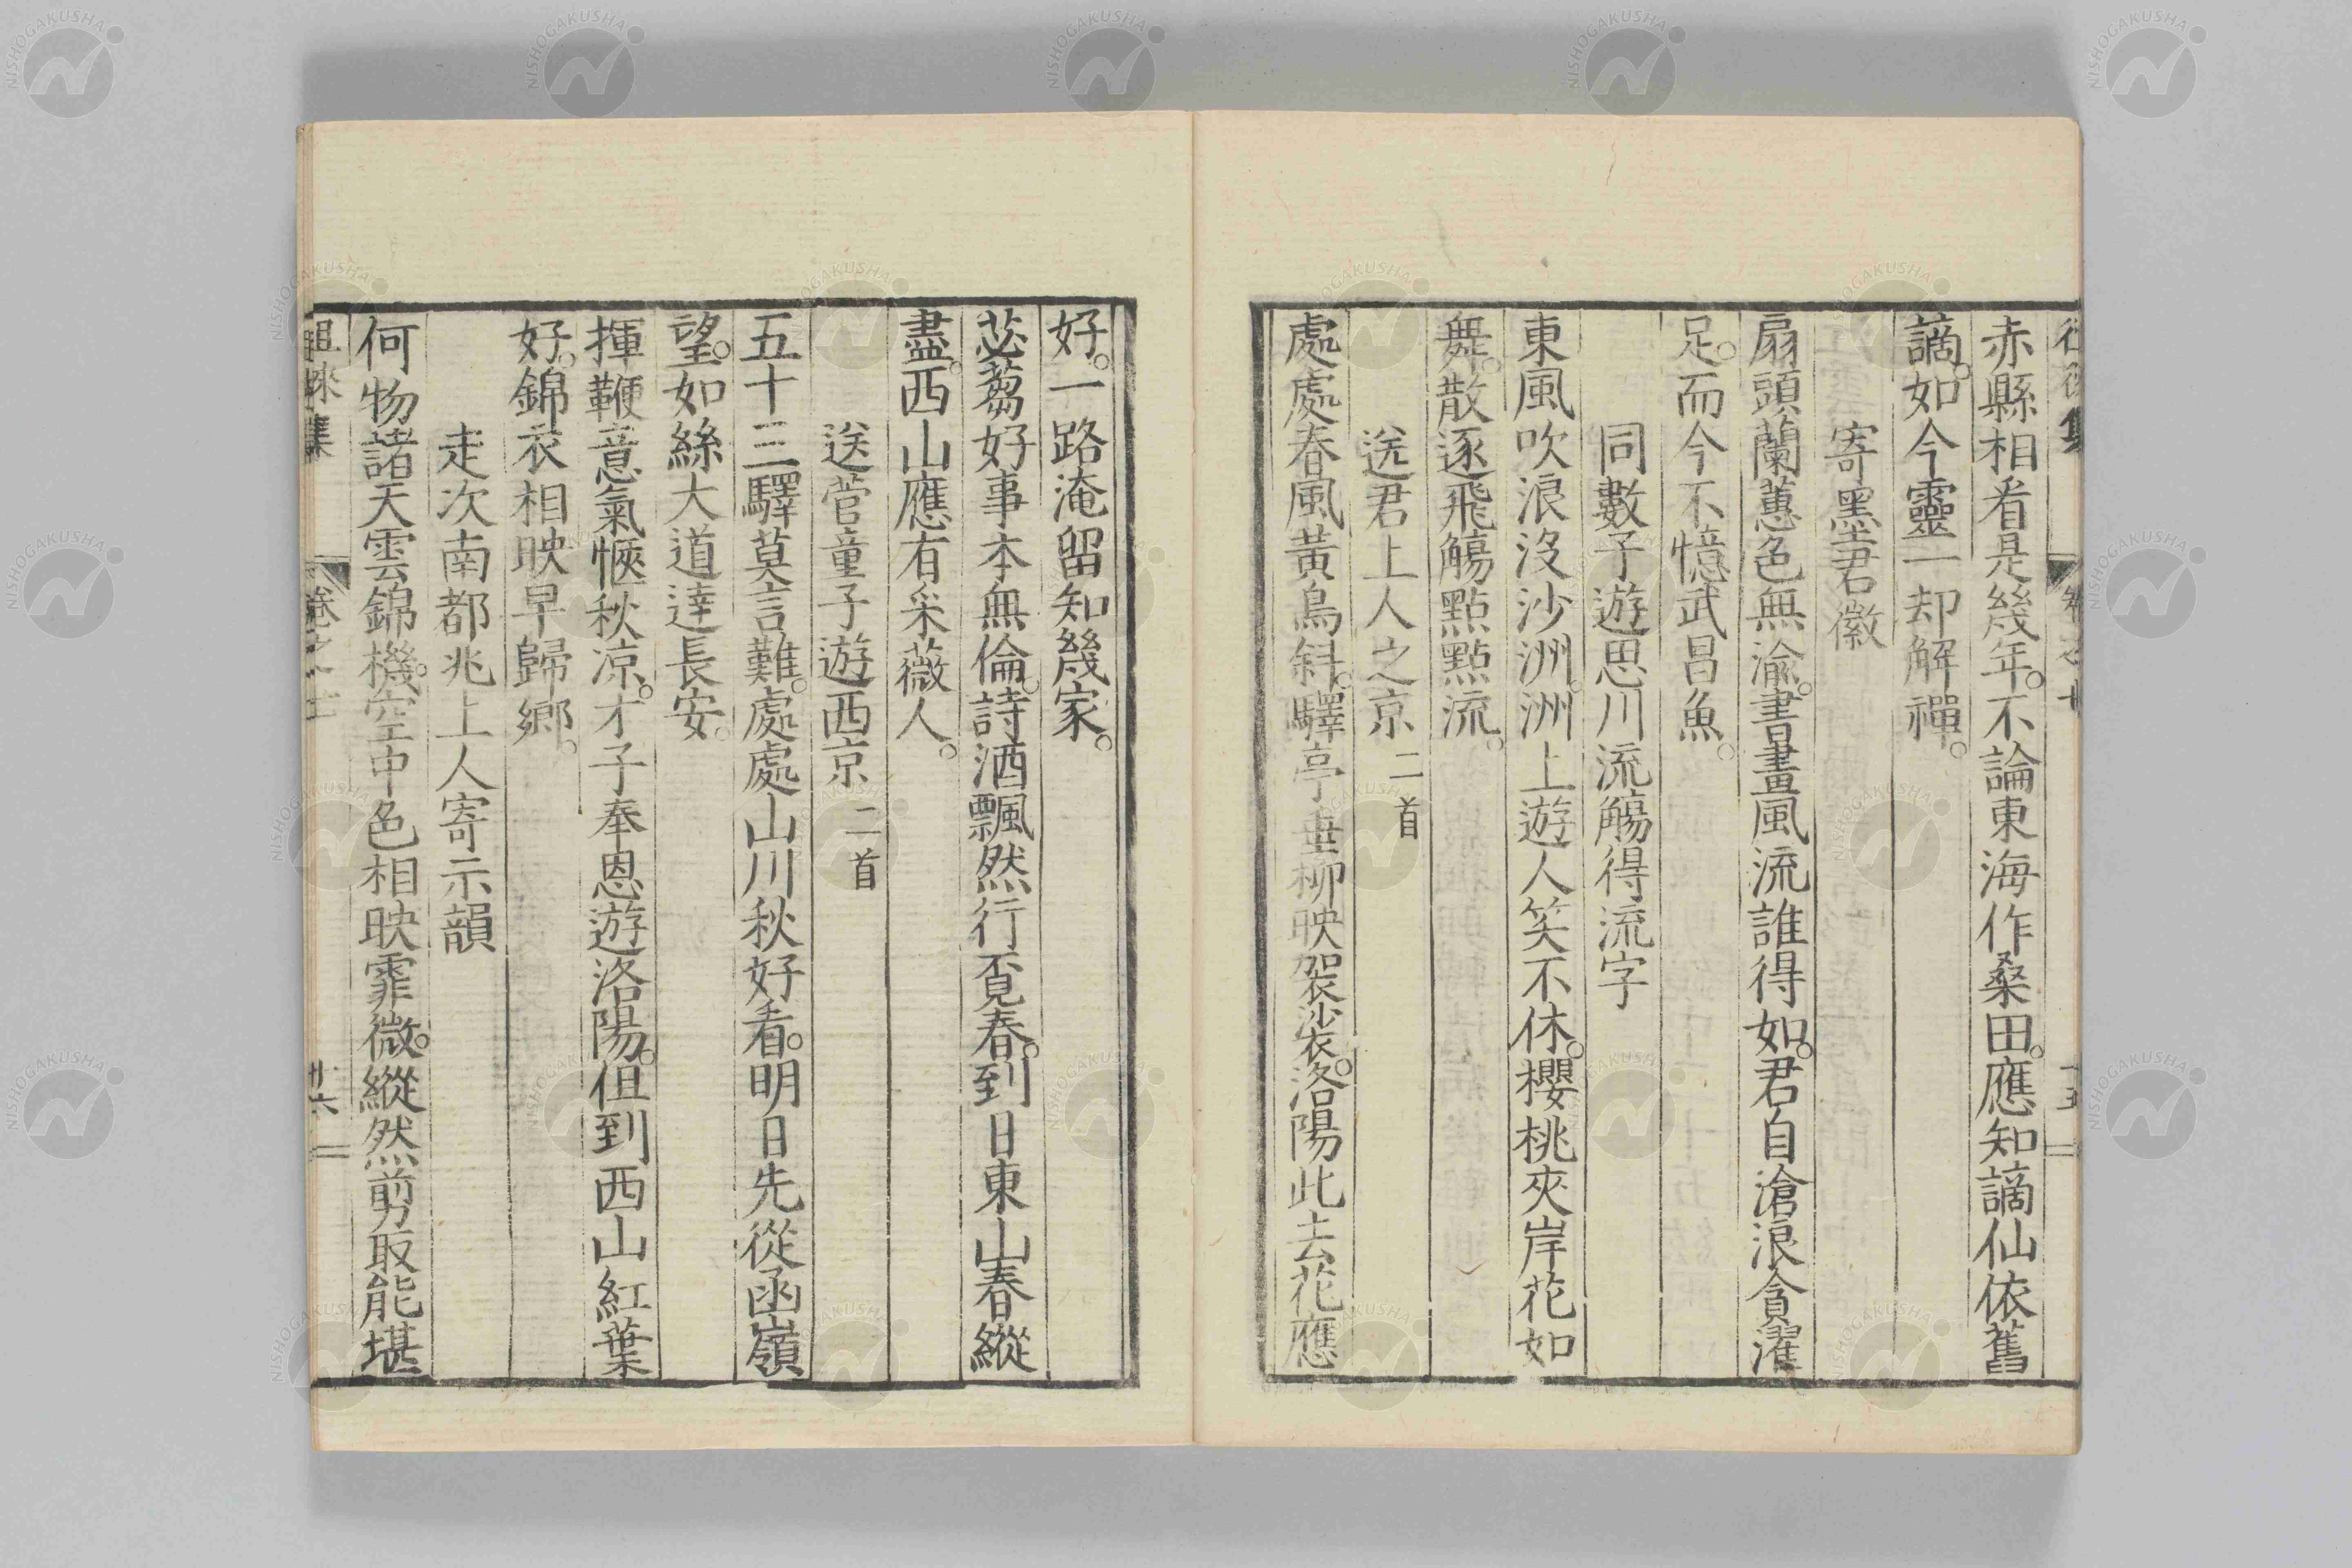 赤縣相看是幾年。不論東海作桑田。應知謫仙依舊
謫。如今靈一却解禪。
寄墨君徽
扇頭蘭蕙色無渝。書畫風流誰得如。君自滄浪貪濯
足。而今不憶武昌魚。
同數子遊思川流觴得流字
東風吹浪沒沙洲。洲上遊人笑不休。櫻桃夾岸花如
舞。散逐飛觴點點流。
送君上人之京 二首
處處春風黃鳥斜。驛亭垂柳映袈裟。洛陽此去花應
好。一路淹留知幾家。
苾蒭好事本無倫。詩酒飄然行覓春。到日東山春縱
盡。西山應有采薇人。
送菅童子遊西京 二首
五十三驛莫言難。處處山川秋好看。明日先從函嶺
望。如絲大道達長安。
揮鞭意氣愜秋凉。才子奉恩遊洛陽。但到西山紅葉
好。錦衣相映早歸鄉。
走次南都兆上人寄示韻
何物諸天雲錦機。空中色相映霏微。縱然剪取能堪
徂徠集 卷之 廿六